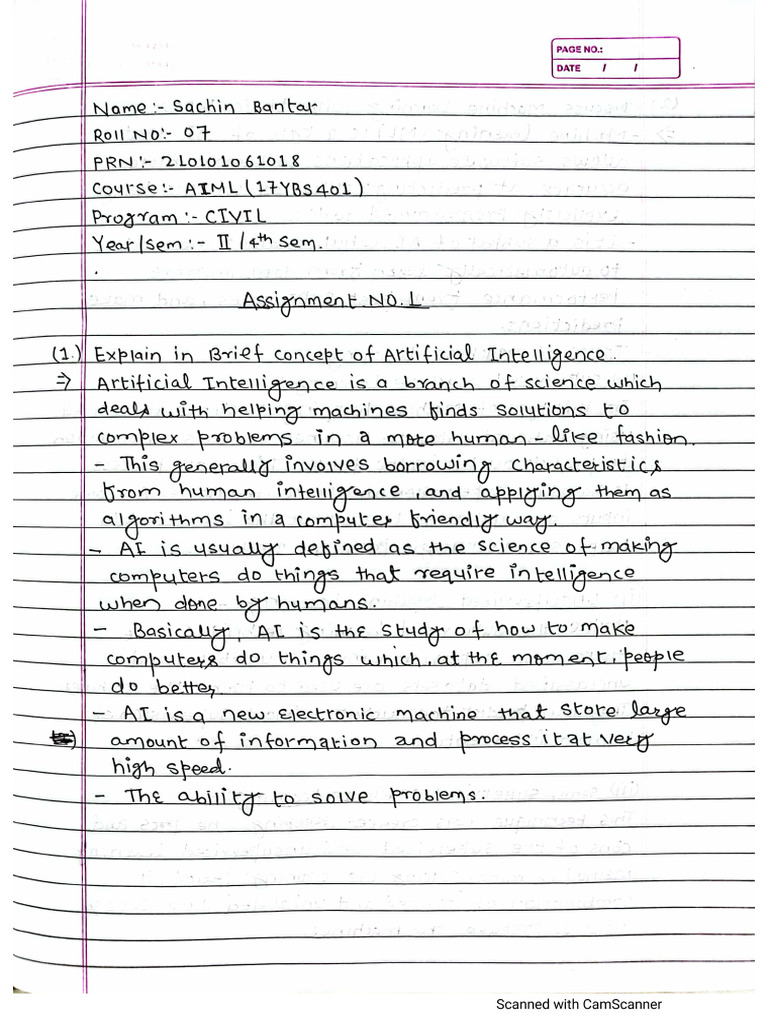 PAGE NO.:
DATE / /
Name :- Sachin Bantar
Roll No:- 07
PRN :- 210101061018
Course :- AIML (17YBS401)
Program :- CIVIL
Year/sem :- II / 4th Sem.
Assignment NO. 1
(1.) Explain in Brief concept of Artificial Intelligence.
⇒ Artificial Intelligence is a branch of science which
deals with helping machines finds solutions to
complex problems in a more human-like fashion.
- This generally involves borrowing characteristics
from human intelligence, and applying them as
algorithms in a computer friendly way.
- AI is usually defined as the science of making
computers do things that require intelligence
when done by humans.
- Basically, AI is the study of how to make
computers do things which, at the moment, people
do better
- AI is a new electronic machine that store large
amount of information and process it at very
high speed.
- The ability to solve problems.
Scanned with CamScanner